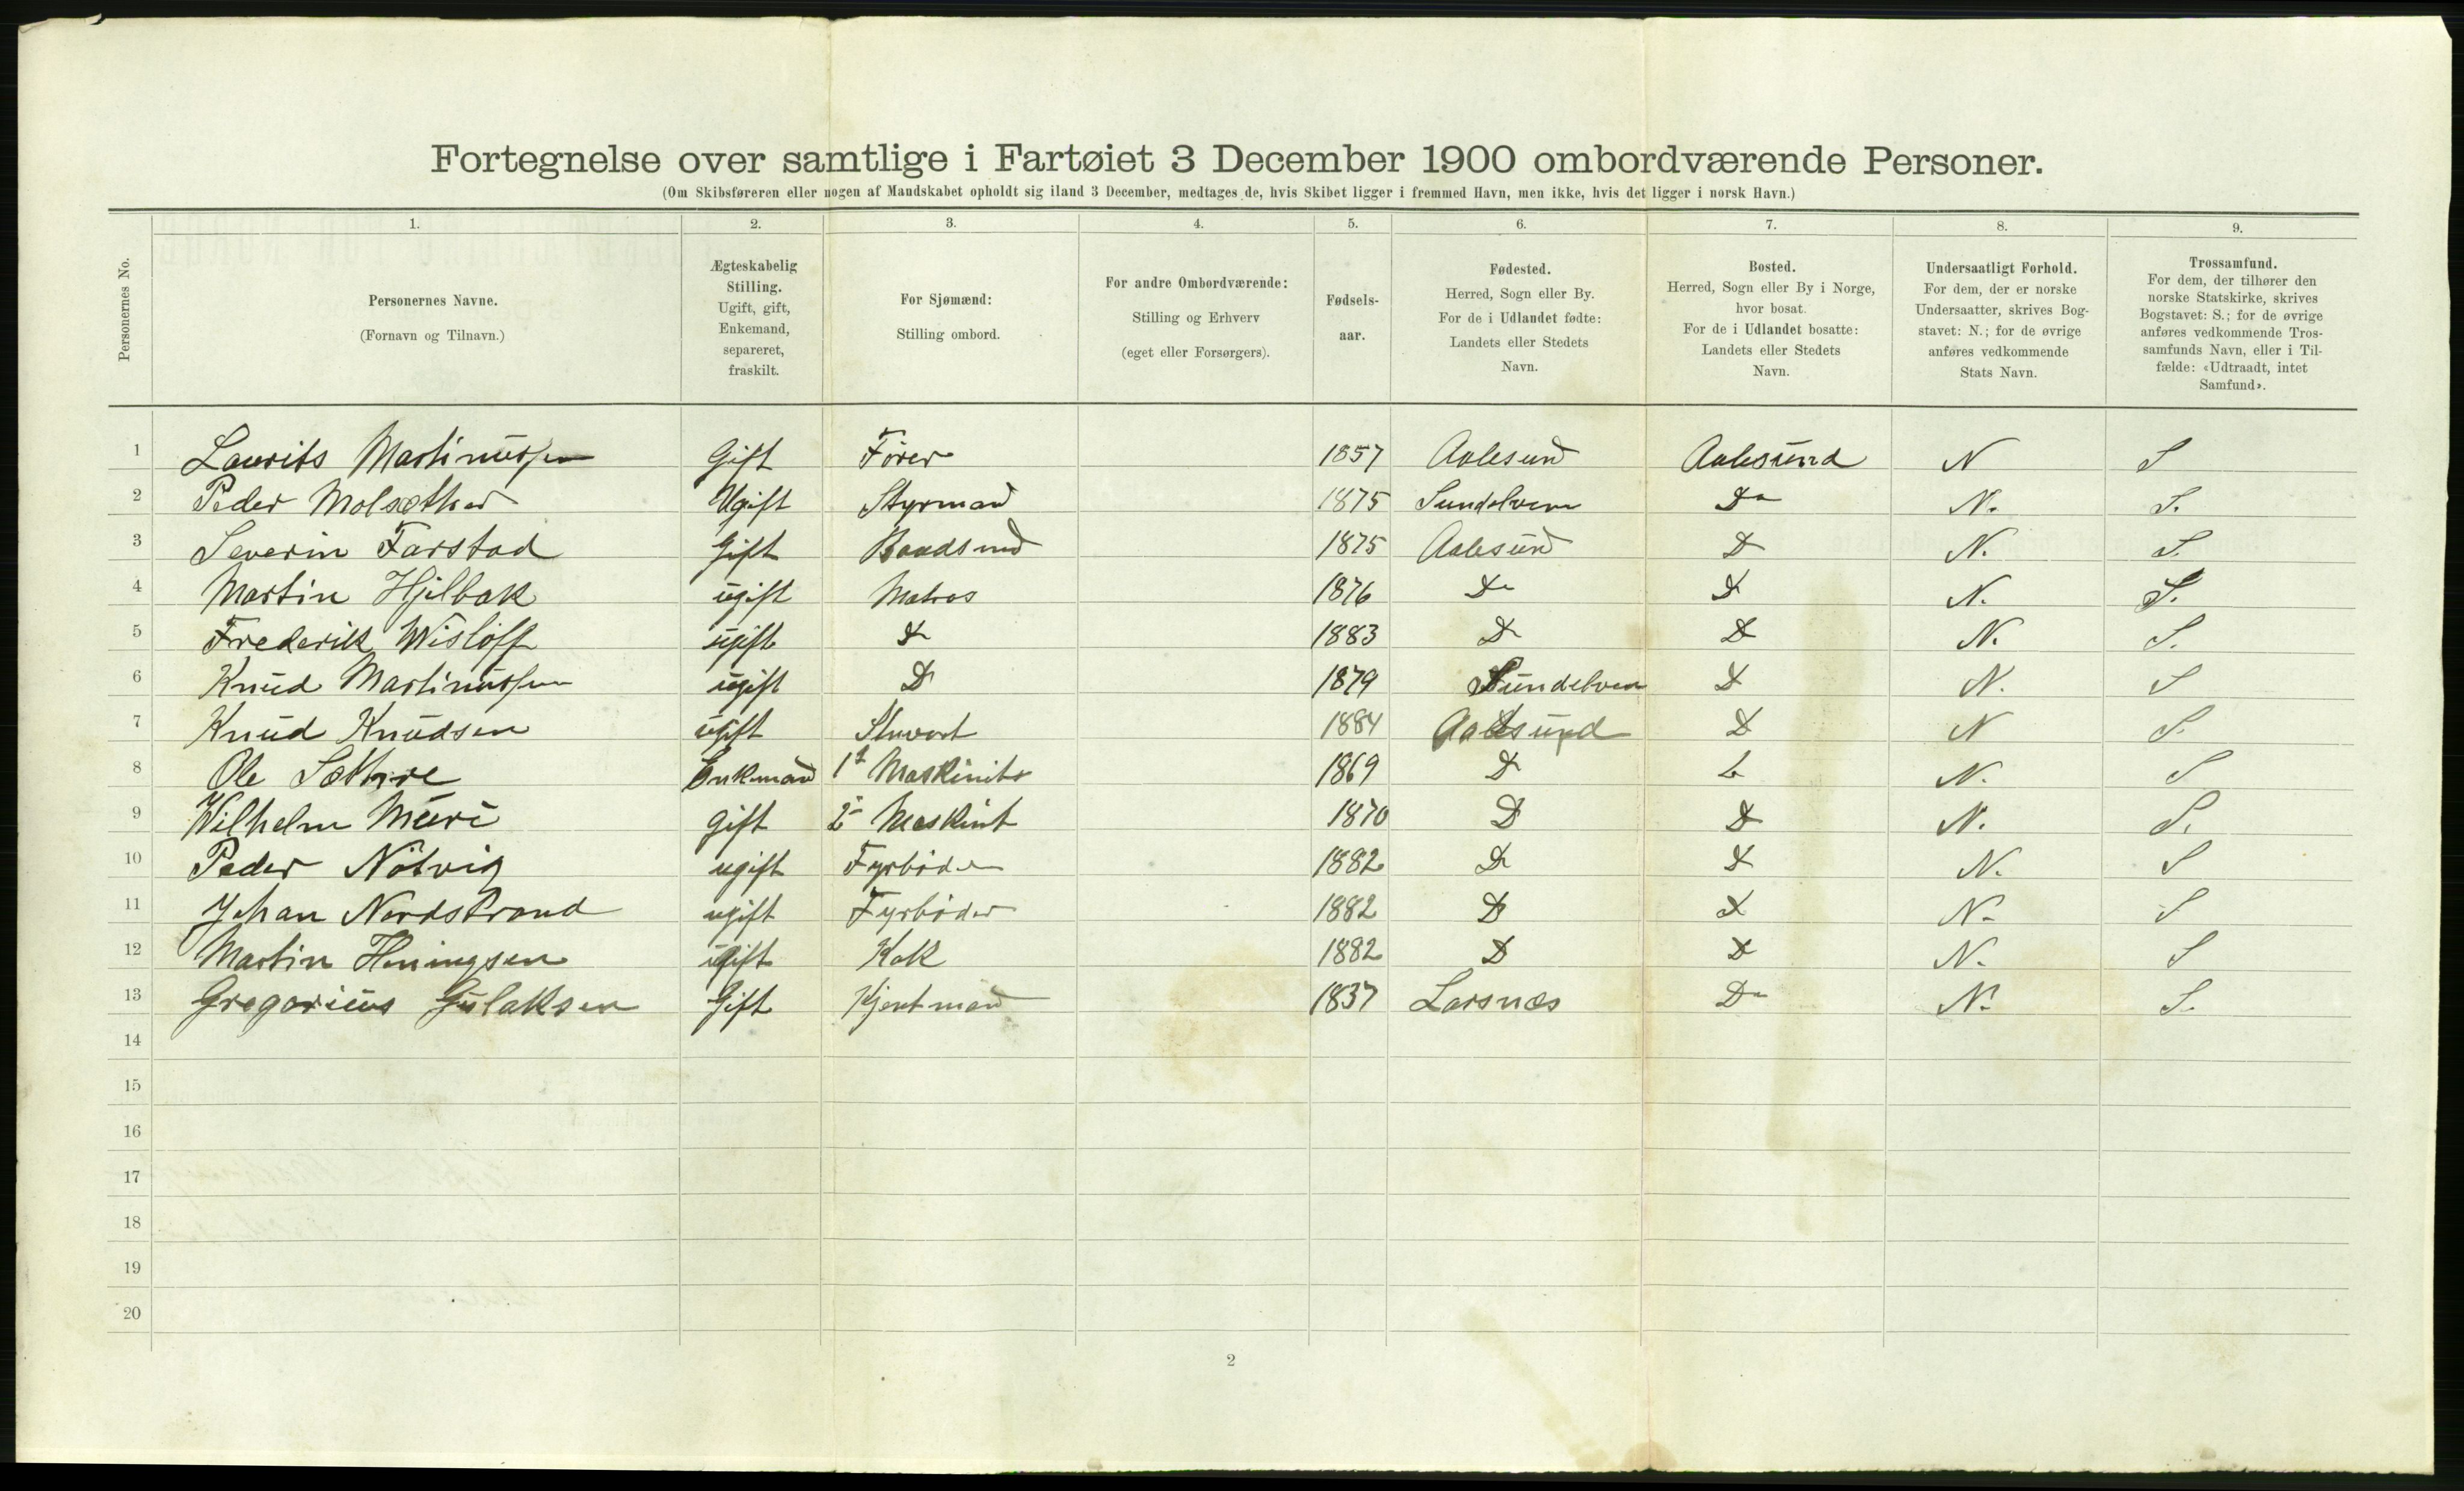 Fortegnelse over samtlige i Fartøiet 3 December 1900 ombordværende Personer.
(Om Skibsføreren eller nogen af Mandskabet opholdt sig iland 3 December, medtages de, hvis Skibet ligger i fremmed Havn, men ikke, hvis det ligger i norsk Havn.)
Personernes No.
1. 2. 3. 4. 5. 6. 7. 8. 9.
Personernes Navne.
(Fornavn og Tilnavn.)
Ægteskabelig
Stilling.
Ugift, gift,
Enkemand,
separeret,
fraskilt.
For Sjømænd:
Stilling ombord.
For andre Ombordværende:
Stilling og Erhverv
(eget eller Forsørgers).
Fødsels-
aar.
Fødested.
Herred, Sogn eller By.
For de i Udlandet fødte:
Landets eller Stedets
Navn.
Bosted.
Herred, Sogn eller By i Norge,
hvor bosat.
For de i Udlandet bosatte:
Landets eller Stedets
Navn.
Undersaatligt Forhold.
For dem, der er norske
Undersaatter, skrives Bog-
stavet: N.; for de øvrige
anføres vedkommende
Stats Navn.
Trossamfund.
For dem, der tilhører den
norske Statskirke, skrives
Bogstavet: S.; for de øvrige
anføres vedkommende Tros-
samfunds Navn, eller i Til-
fælde: «Udtraadt, intet
Samfund».
1 Laurits Martinussen Gift Fører 1857 Aalesund Aalesund N S
2 Peder Molsæther Ugift Styrmand 1875 Sundelven Do N. S.
3 Severin Farstad Gift Baadsmd 1875 Aalesund D N. S.
4 Martin Hjelbak ugift Matros 1876 Do D N. S.
5 Frederik Wisløff ugift D 1883 D D N. S.
6 Knud Martinussen ugift D 1879 Sundelven D N. S
7 Knud Knudsen ugift Stuvert 1884 Aalesund D N S.
8 Ole Sættre Enkmand 1ste Maskinits 1869 D N. S
9 Wilhelm Muri gift 2 Maskint 1870 D D N. S.
10 Peder Nötvig ugift Fyrböder 1882 D D N. S
11 Johan Nordstrand ugift Fyrböder 1882 D D N. S
12 Martin Heningsen ugift Kok 1882 D D N. S
13 Gregorius Gulaksen Gift Kjentmand 1837 Larsnæs Do N. S.
14
15
16
17
18
19
20
2